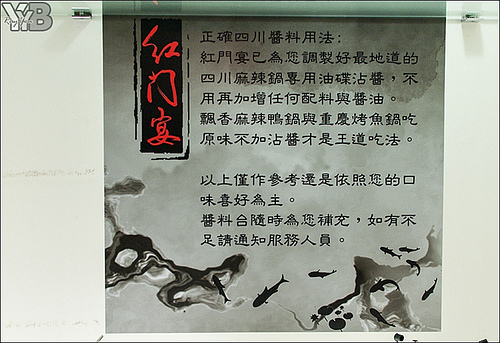 YB
紅門宴
正確四川醬料用法:
紅門宴已為您調製好最地道的
四川麻辣鍋專用油碟沾醬，不
用再加增任何配料與醬油。
飄香麻辣鴨鍋與重慶烤魚鍋吃
原味不加沾醬才是王道吃法。
以上僅作參考還是依照您的口
味喜好為主。
醬料台隨時為您補充，如有不
足請通知服務人員。